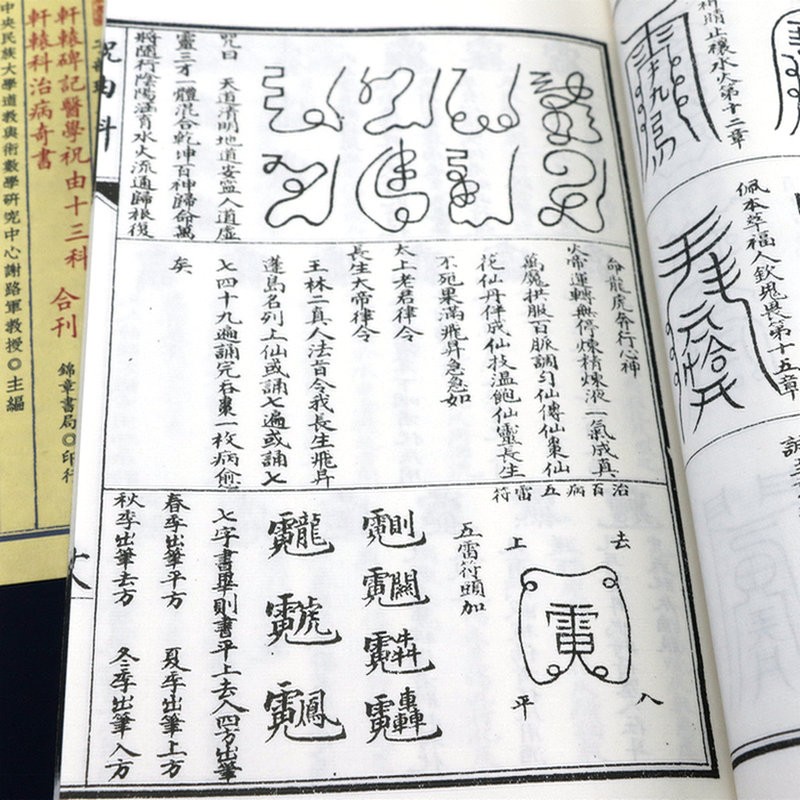 軒轅碑記醫學祝由十三科 合刊
軒轅科治病奇書
中央民族大學道教與術數學研究中心謝路軍教授◎主編
錦章書局◎印行
祝由科
咒曰 天道清明地道安寧人道虛
靈三才一體混合乾坤百神歸命萬
將隨行陰陽涵育水火流通歸根復
命龍虎奔行心神
火帝運轉無停煉精煉液一氣成真
萬魔拱服百脈調勻仙傳仙棗仙
花仙丹伴成仙技溫飽仙靈長生
不死果滿飛昇急急如
太上老君律令
長生大帝律令
王林二真人法旨令我長生飛昇
蓬島名列上仙或誦七遍或誦七
七四十九遍誦完吞棗一枚病愈
矣
治百病五雷符
去
上
雷
平
入
五雷符頭加
七字書畢則書平上去入四方出筆
春季出筆平方 夏季出筆上方
秋季出筆去方 冬季出筆入方
祈晴止禳水火第十二章
佩本草福人欽鬼畏第十五章